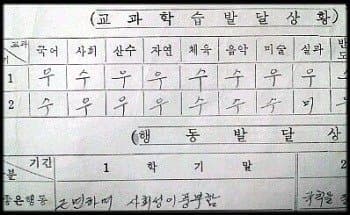 (교과학습발달상황)
교과 국어 사회 산수 자연 체육 음악 미술 실과 반
1 우 수 우 우 수 수 우 우
2 수 우 우 우 수 수 수 미
(행동발달상
기간 1 학기말 2
분
좋은행동 근면하며 사회성이 풍부함